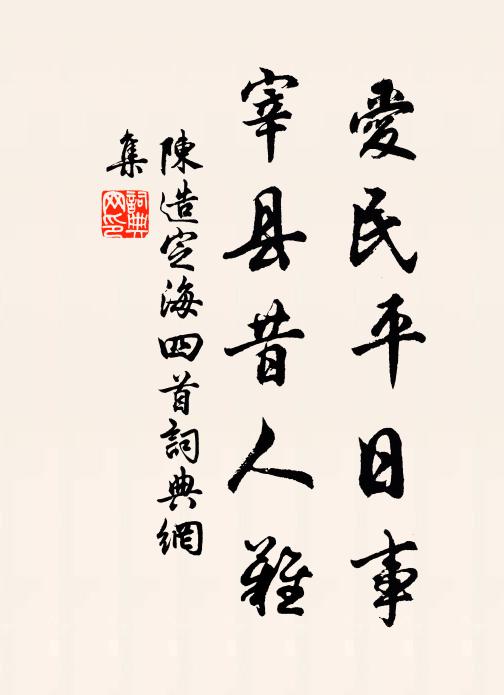 愛民平日事
宰县昔人難
陳造定海四首詞典網
集
詞典網印